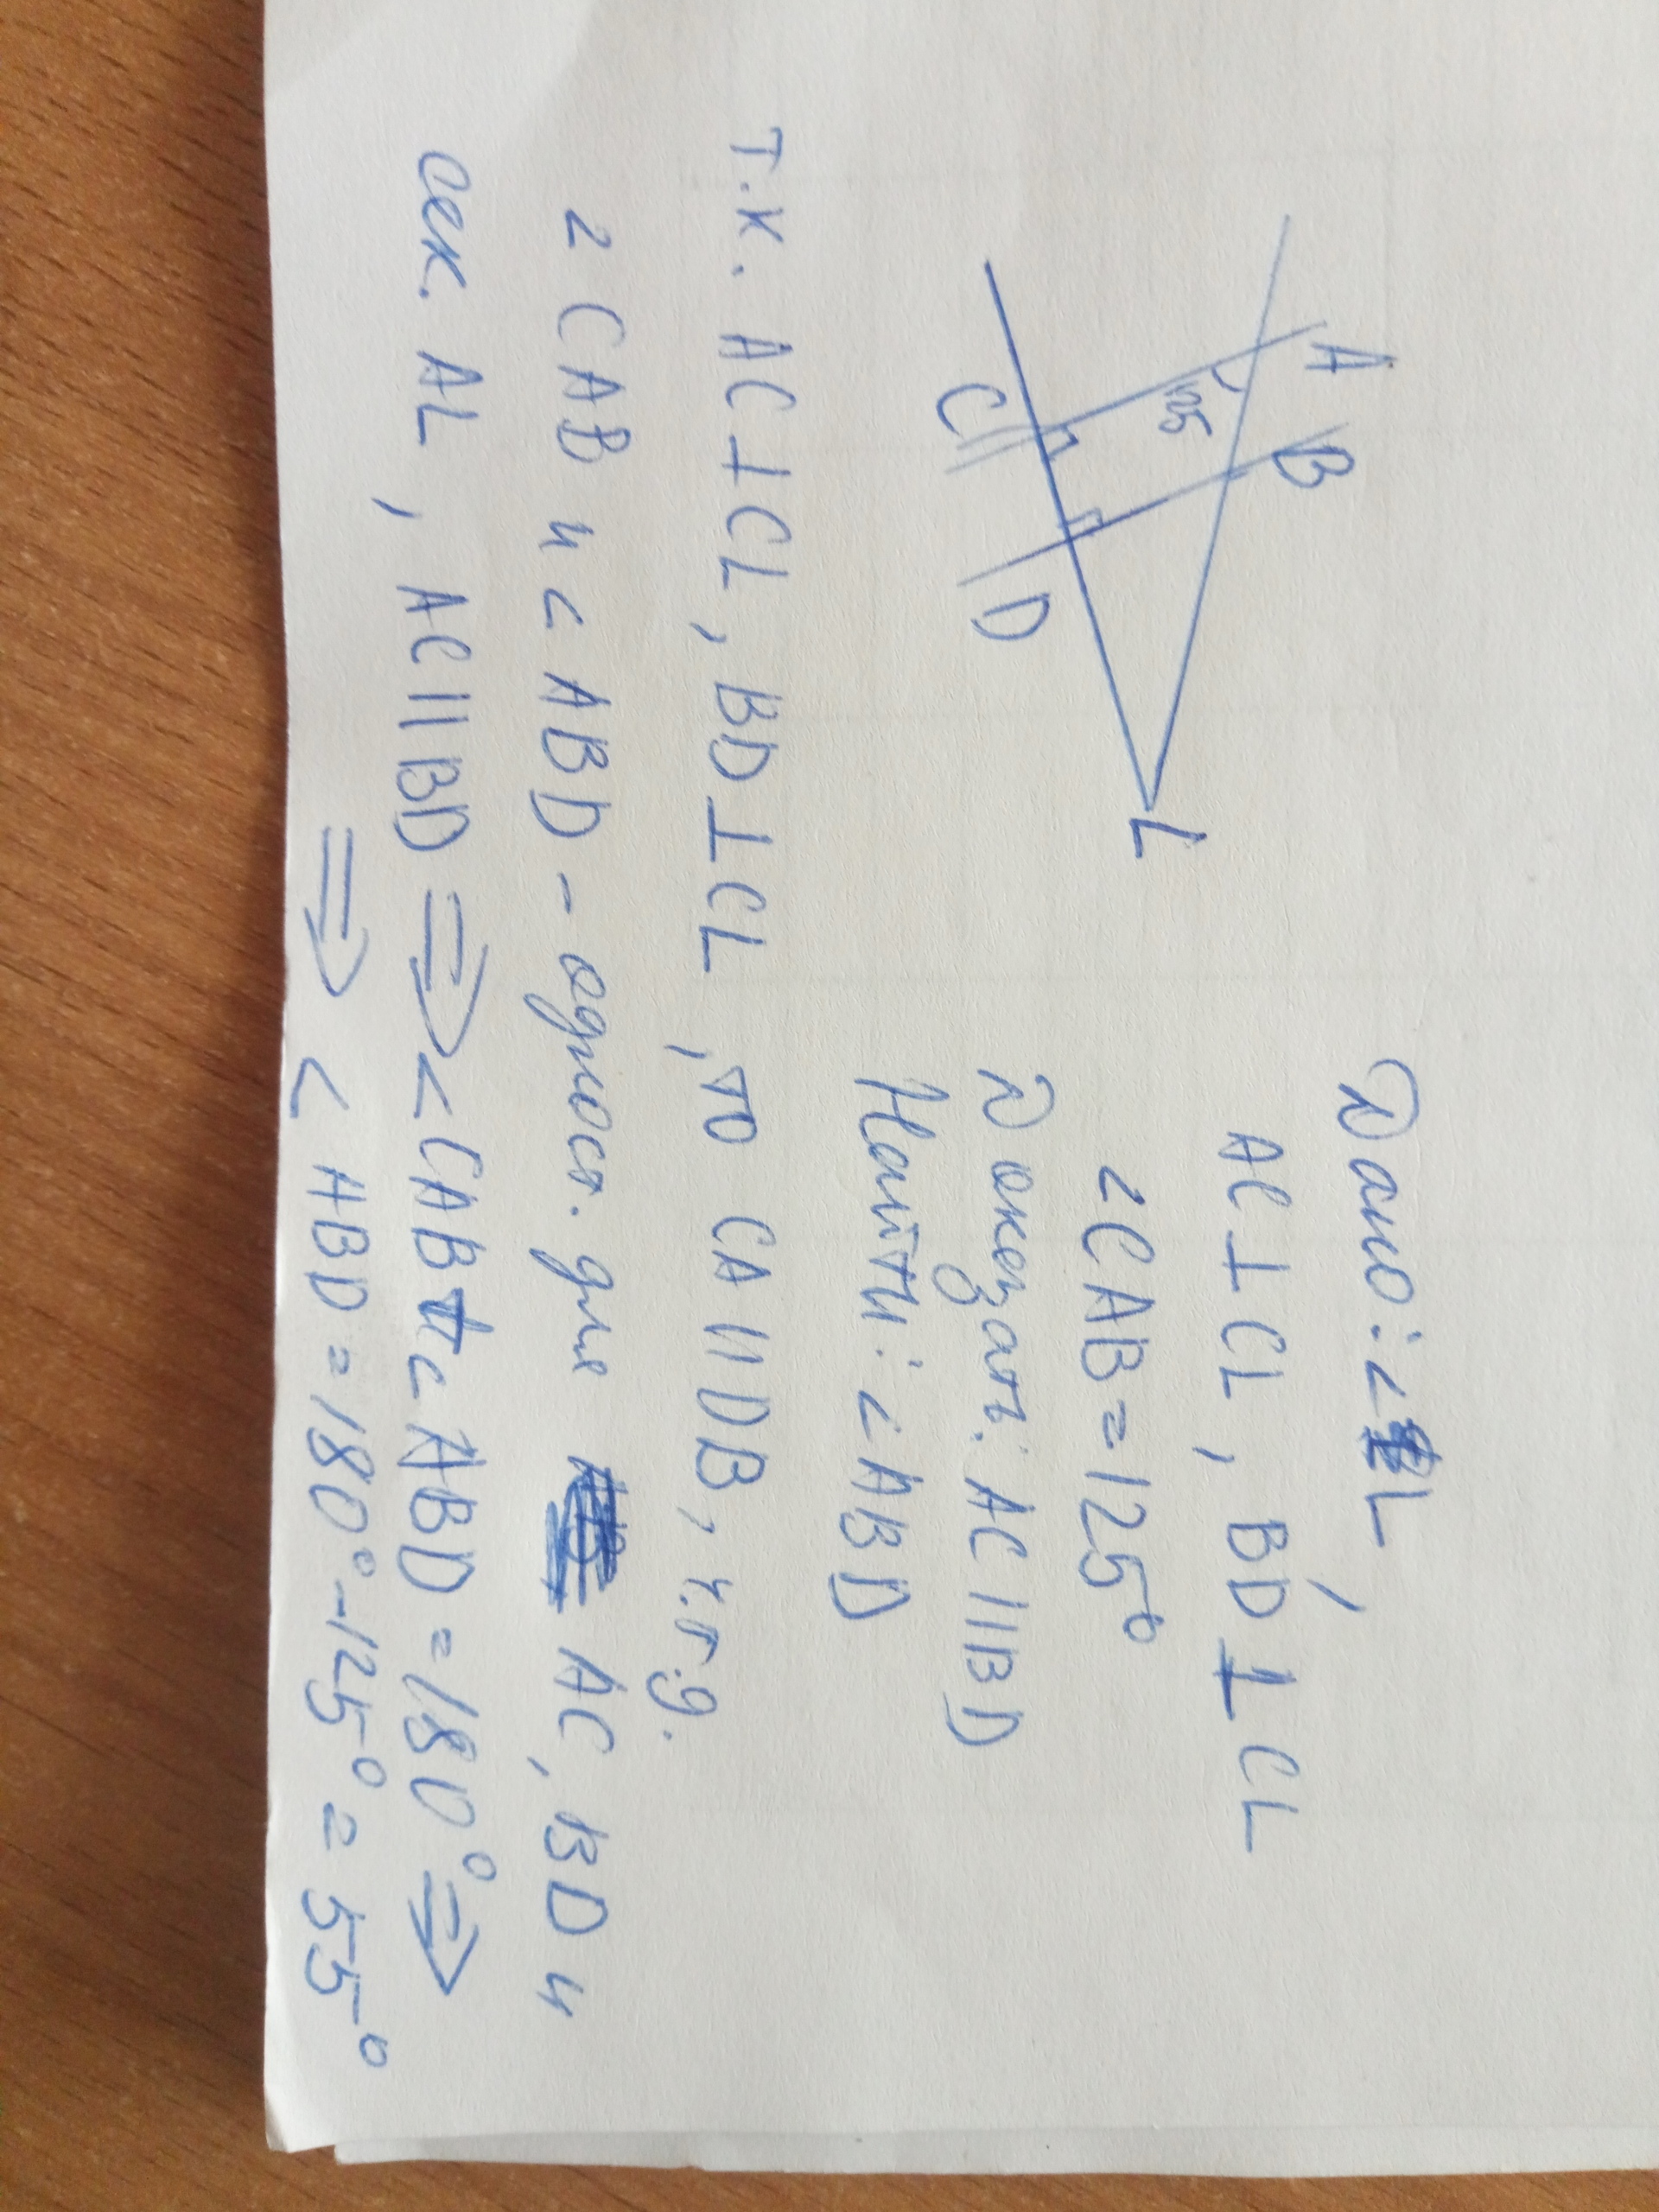 A
B
125
C
D
L
Дано: ∠L,
AC⊥CL, BD⊥CL
∠CAB=125°
Доказать: AC||BD
Найти: ∠ABD
т.к. AC⊥CL, BD⊥CL, то CA||DB, ч.т.д.
∠CAB и ∠ABD - одност. для AC, BD и
сек. AL, AC||BD ⟹ ∠CAB+∠ABD=180° ⟹
⟹ ∠ABD=180°-125°=55°